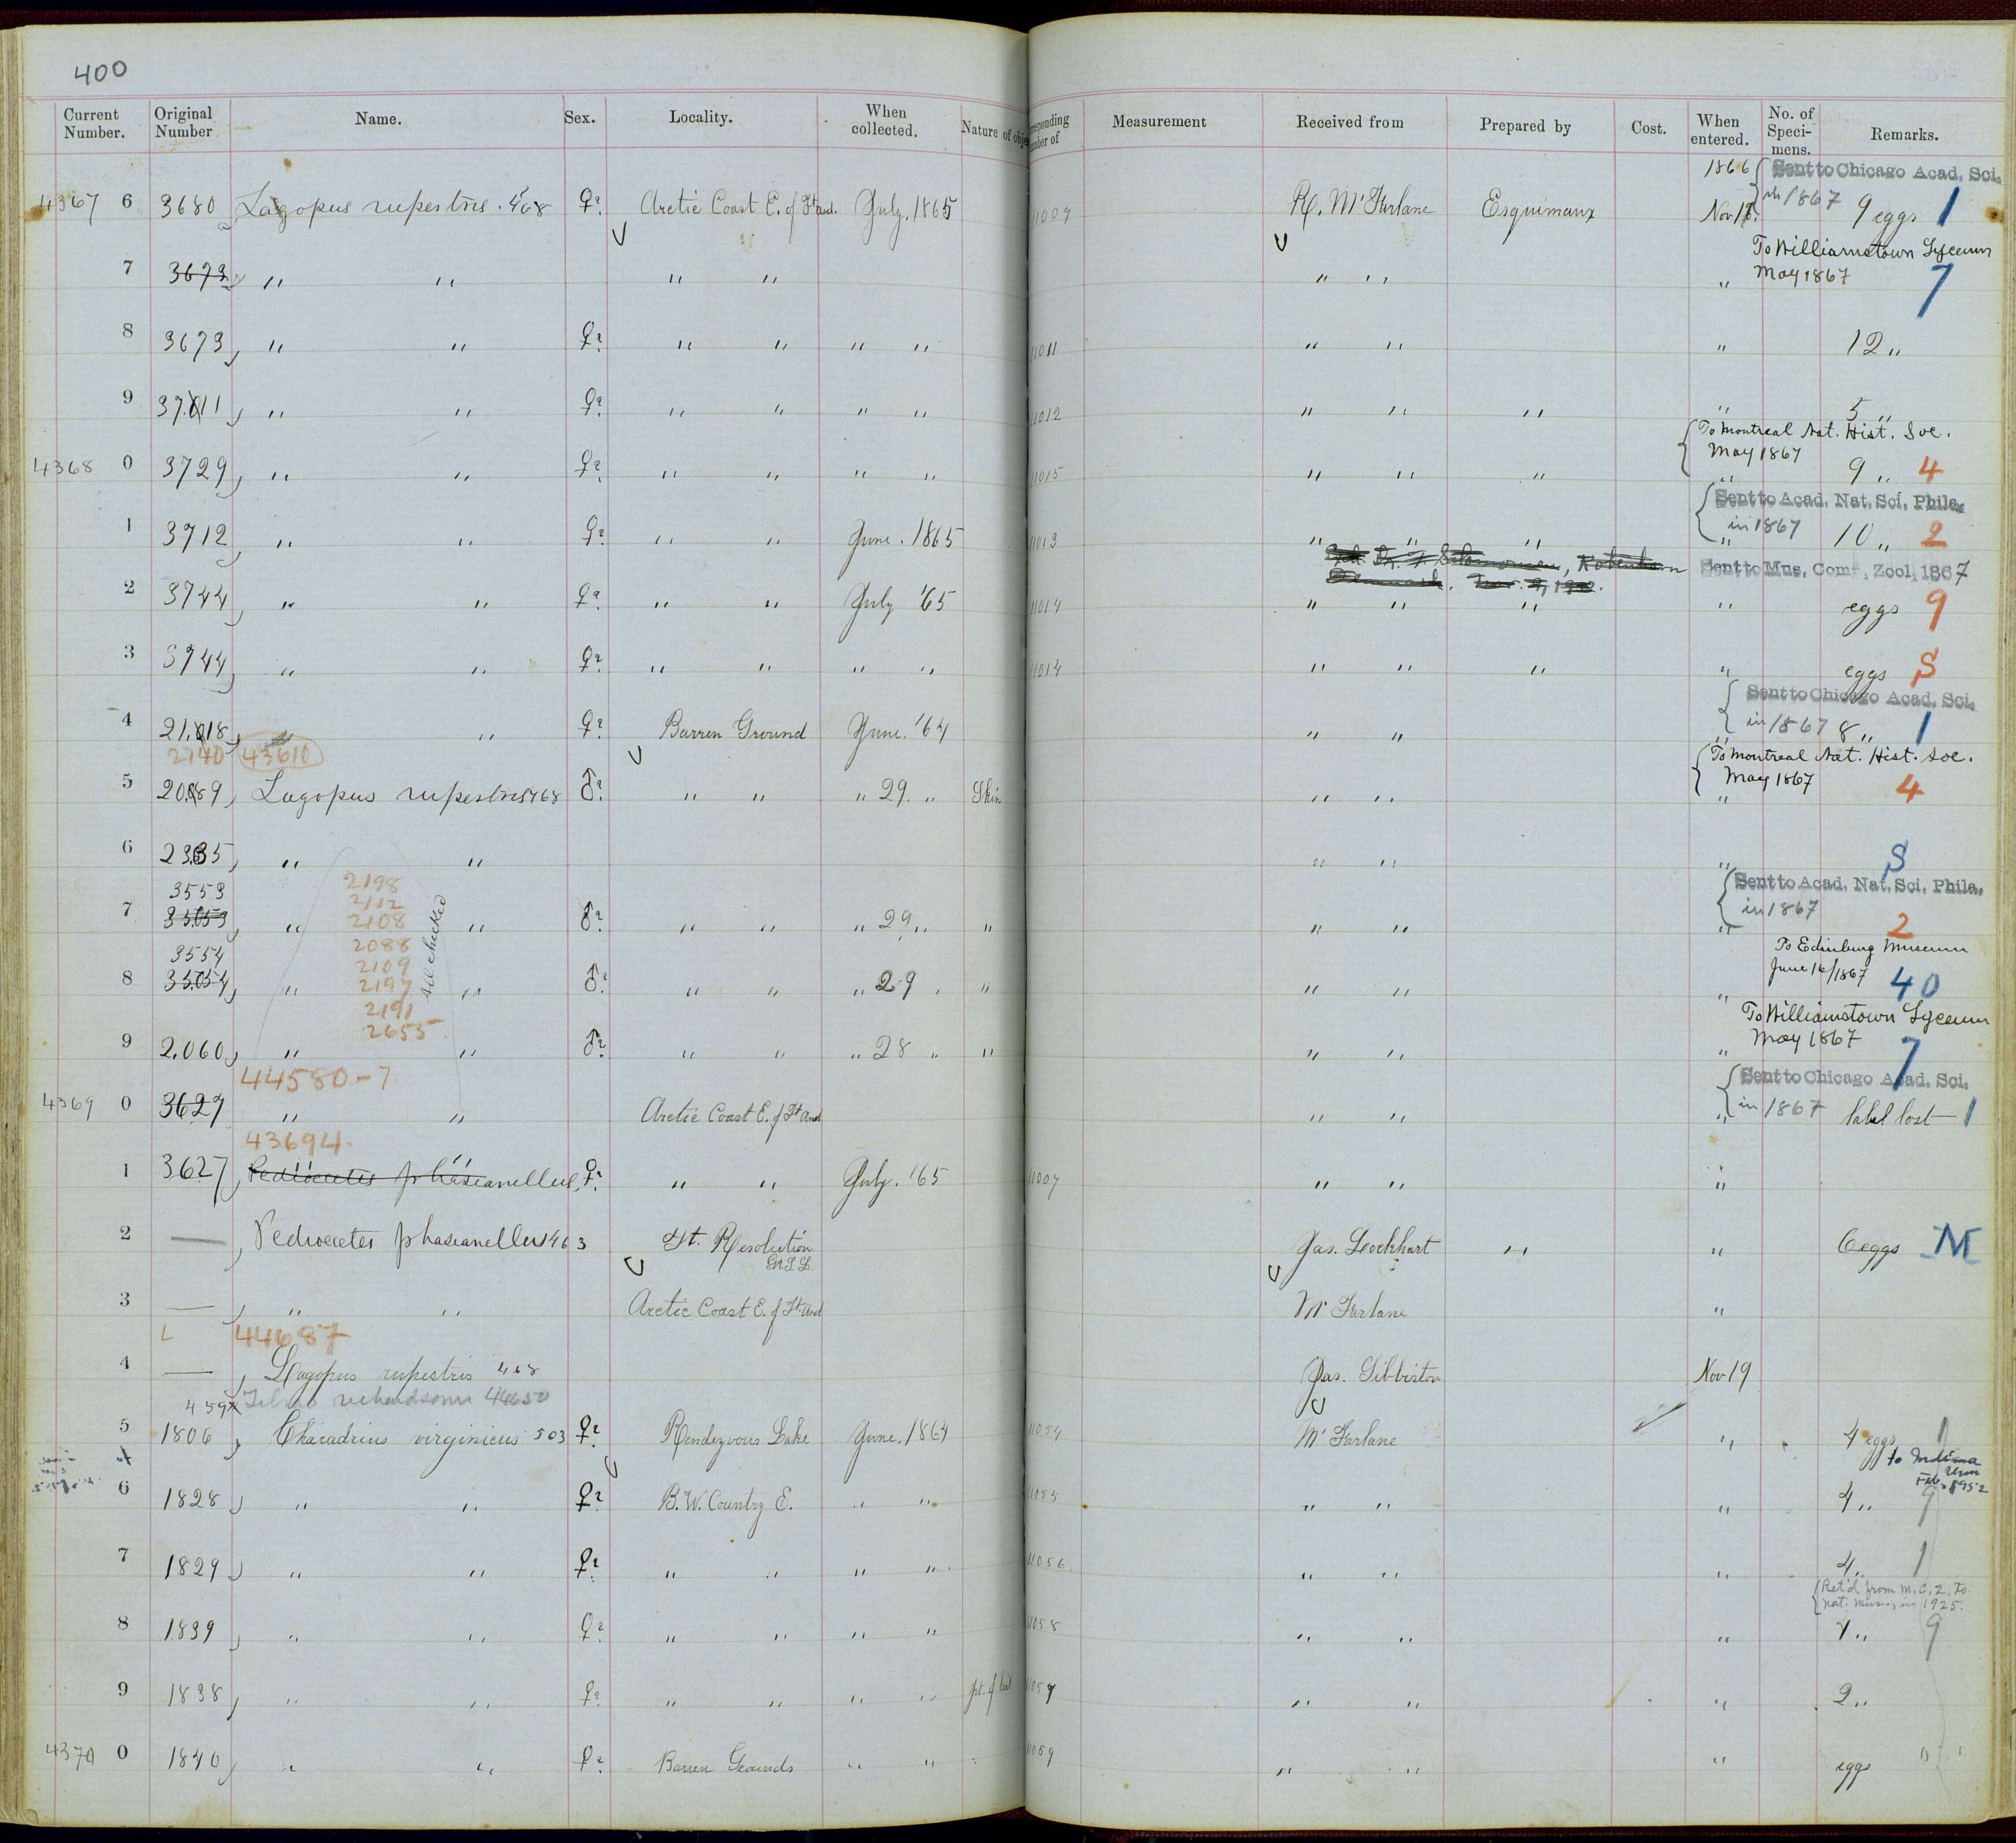 400
Current Number. Original Number Name. Sex. Locality. When collected. Nature of obje
responding mber of Measurement Received from Prepared by Cost. When entered. No. of Speci-mens. Remarks.
1866 { Sent to Chicago Acad. Sci.
in 1867
4367 6 3680 Lagopus rupestris. 468 ♀? Arctic Coast E. of Ft And. July. 1865 11009 R. McFarlane Esquimaux Nov 17. 9 eggs 1
To Williamstown Lyceum
May 1867
7 3673 " " " " " " " 7
8 3673, " " ♀? " " " " 11011 " " " 12 "
9 37.011, " " ♀? " " " " 11012 " " " " 5 "
{ To Montreal Nat. Hist. Soc.
May 1867
4368 0 3729, " " ♀? " " " " 11015 " " " " 9 " 4
{ Sent to Acad. Nat. Sci. Phila.
in 1867
1 3712, " " ♀? " " June. 1865 11013 " " " " 10 " 2
Sent to Mus. Comp. Zool. 1867
2 3744, " " ♀? " " July '65 11014 " " " " eggs 9
3 3744, " " ♀? " " " " 11014 " " " " eggs S
{ Sent to Chicago Acad. Sci.
in 1867
4 21.018, " " ♀? Barren Ground June. '64 " " " 8 " 1
2140 43610
{ To Montreal Nat. Hist. Soc.
May 1867
5 20.89, Lagopus rupestris 468 ♂? " " " 29. " Skin " " " 4
6 23.35, " " " " " S
2198
3553 2112
{ Sent to Acad. Nat. Sci. Phila.
in 1867
7 35.053, " 2108 " ♂? " " " 29 " " " " " 2
all checked
2088
3554 2109
To Edinburg Museum
June 16/1867
8 35.054, " 2197 " ♂? " " " 29 " " " " " 40
2191
2655
To Williamstown Lyceum
May 1867
9 2.060, " " ♂? " " " 28 " " " " " 7
44580-7
{ Sent to Chicago Acad. Sci.
in 1867
4369 0 3627 " " Arctic Coast E. of Ft And " " " label lost 1
43694.
1 3627, Pedioecetes phasianellus, ♀? " " July. '65 11007 " " "
2 —, Pedioecetes phasianellus 463 Ft. Resolution Jas. Lockhart " " 6 eggs M
Gt. S. L.
3 —, " " Arctic Coast E. of Ft And McFarlane "
L 44687
4 —, Lagopus rupestris 468 Jas. Sibbiston Nov 19
459 richardsonii 44650
5 1806, Charadrius virginicus 503 ♀? Rendezvous Lake June. 1864 11054 McFarlane " 4 eggs 1
to Indiana
Univ
Feb. 1952
6 1828, " " ♀? B.W. Country E. " " 11055 " " " 4 " 9
7 1829, " " ♀? " " " " 11056 " " " 4 " 1
{ Ret'd from M.C.Z. to
Nat. Mus. in 1925.
8 1839, " " ♀? " " " " 11058 " " " " 9
9 1838, " " ♀? " " " " 11057 " " " 2 "
4370 0 1840, " " ♀? Barren Grounds " " 11059 " " " eggs